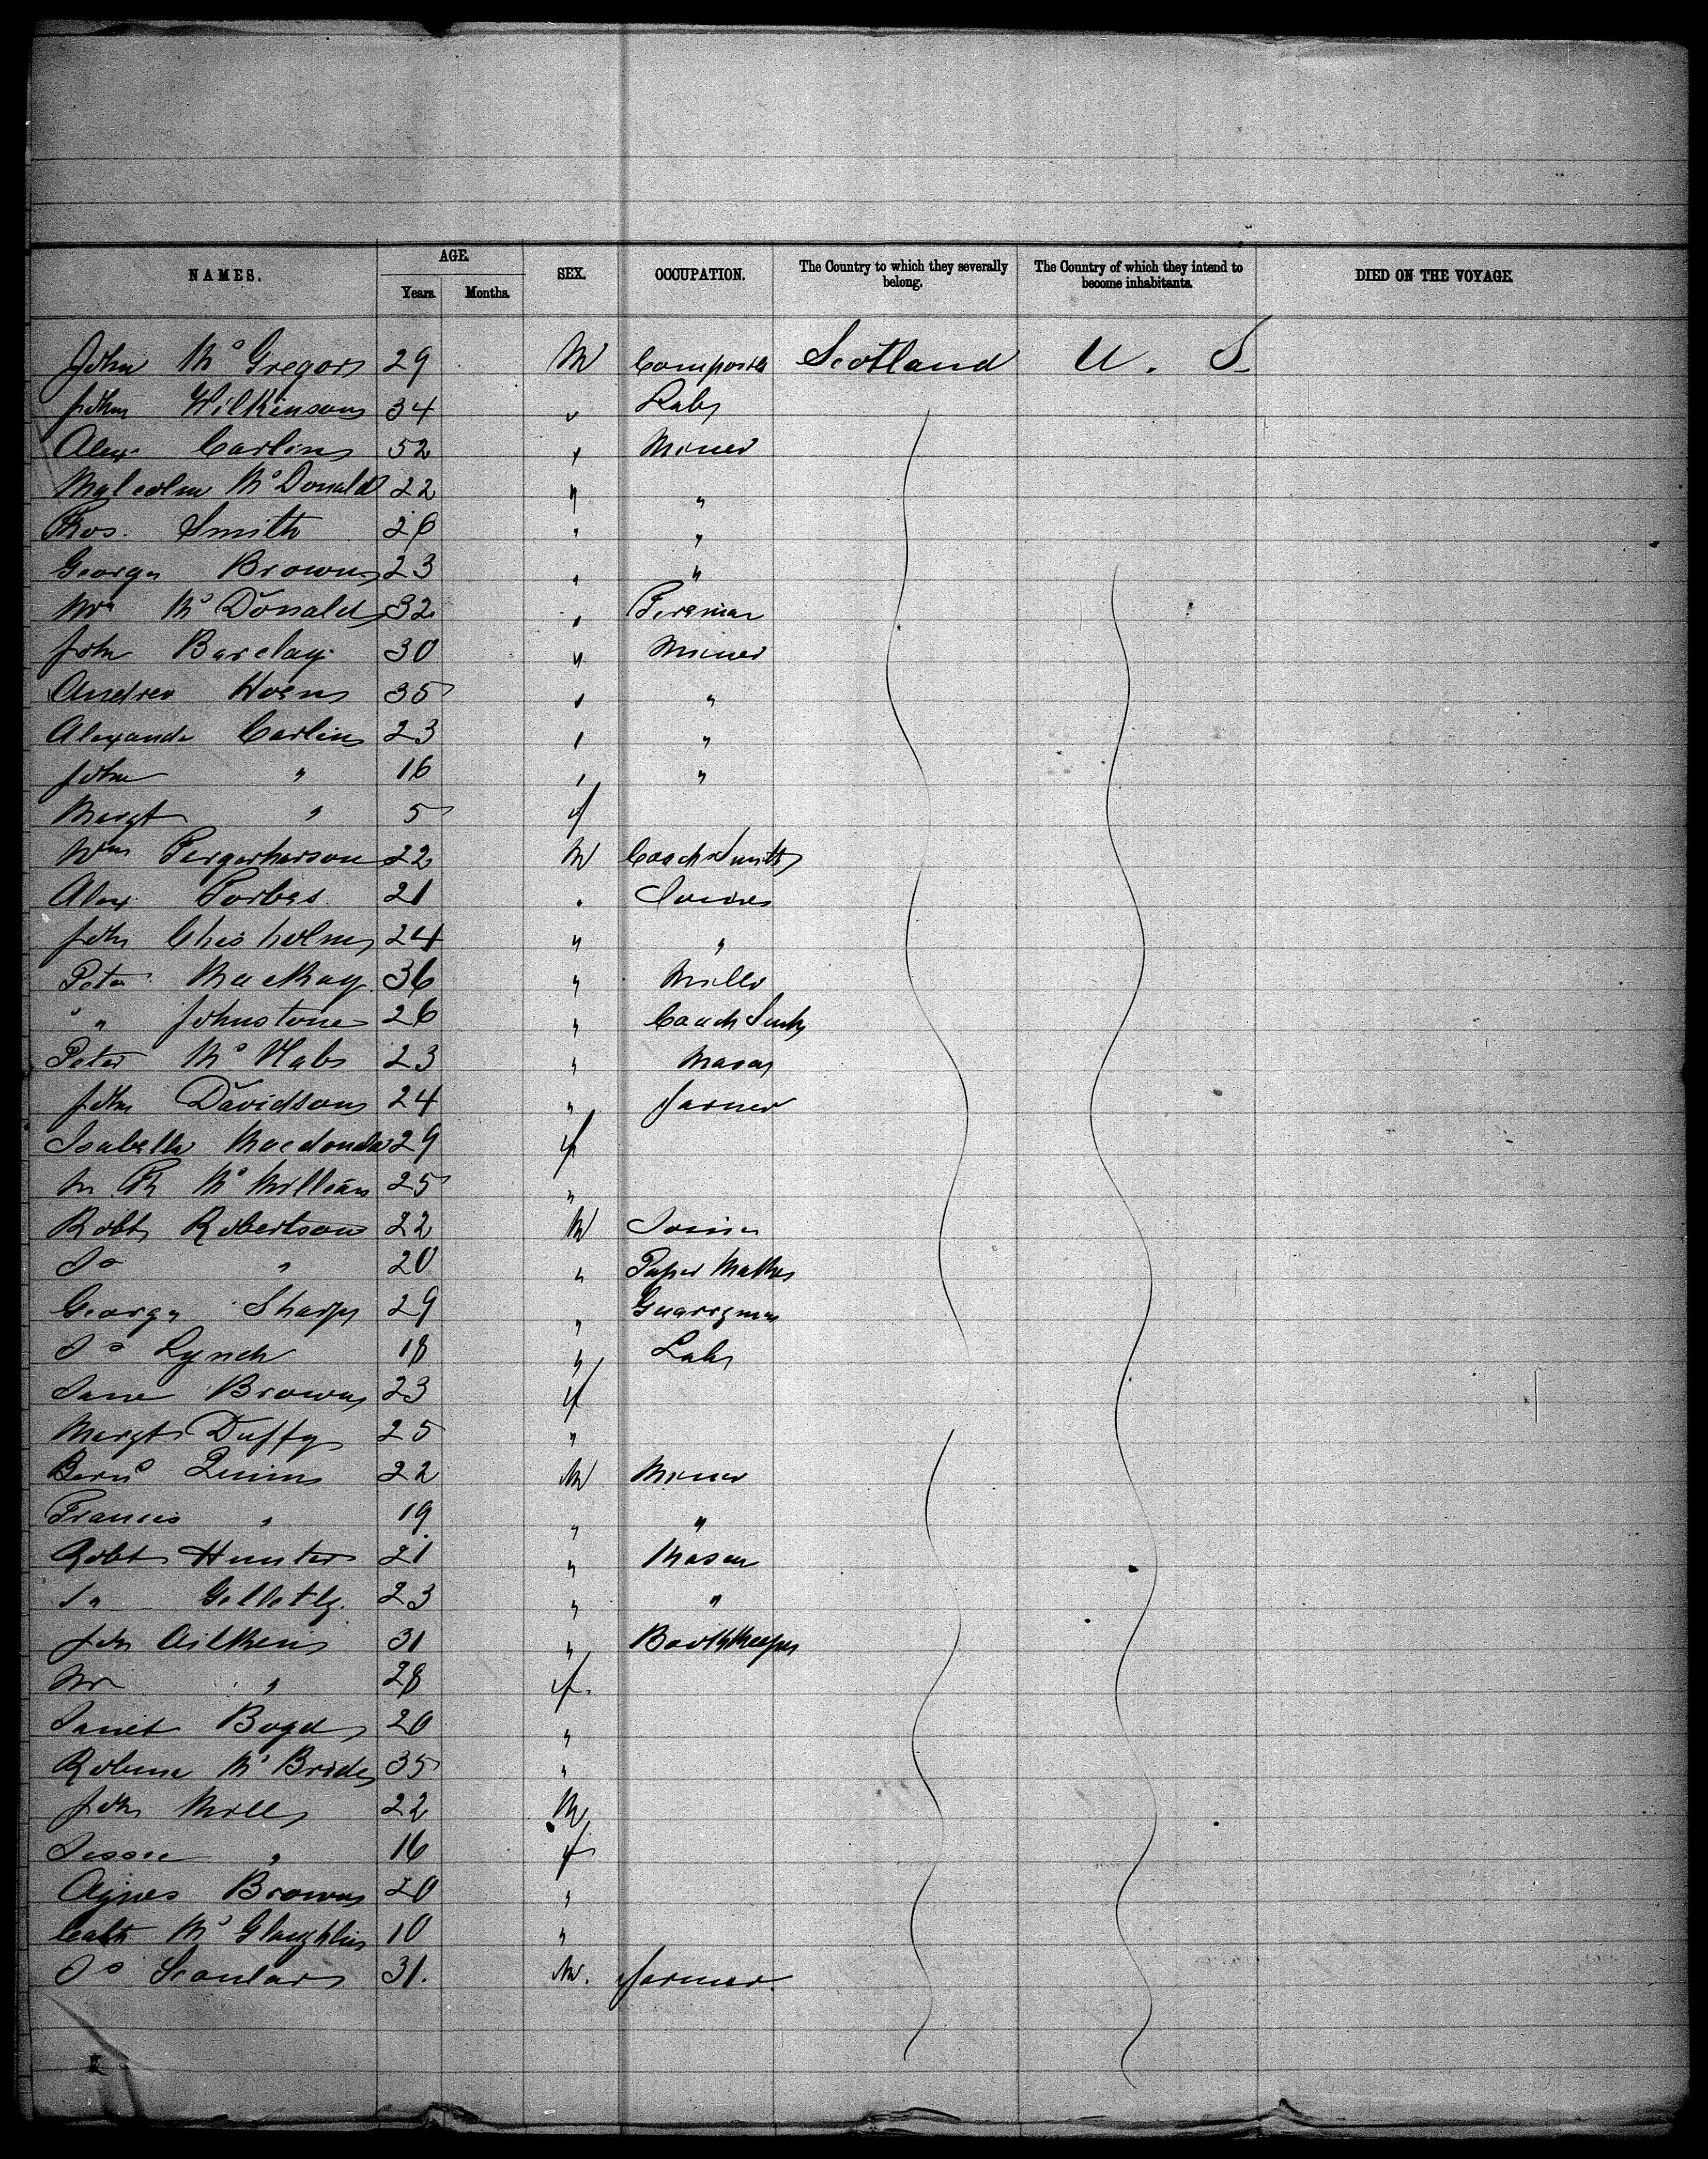 NAMES. AGE. Years. Months. SEX. OCCUPATION. The Country to which they severally belong. The Country of which they intend to become inhabitants. DIED ON THE VOYAGE.
John McGregor 29 M Compositor Scotland U. S.
John Wilkinson 34 " Labr
Alex. Carlin 52 " Miner
Malcolm McDonald 22 " "
Thos. Smith 26 " "
George Brown 23 " "
Wm McDonald 32 " Fireman
John Barclay 30 " Miner
Andrew 35 " "
Alexander Carlin 23 " "
John " 16 " "
Margt " 5 f
Wm 22 M Coach Smith
Alex Forbes 21 " Joiner
John Chisholm 24 " "
Peter MacKay 36 " Miller
" Johnstone 26 " Coach Smith
Peter McNab 23 " Mason
John Davidson 24 " farmer
Isabella Macdonald 29 f
McMillan 25 "
Robt Robertson 22 M Joiner
Jas " 20 " Paper Maker
George Sharp 29 " Quarryman
Jas Lynch 18 " Labr
Jane Brown 23 f
Margt Duffy 25 "
Bernd Quinn 22 M Miner
Francis " 19 " "
Robt Hunter 21 " Mason
Jas Gellatly 23 " "
John Aitken 31 " Bookkeeper
Mrs " 28 f.
Janet Boyd 20 "
Robina McBride 35 "
John Mill 22 M
Jessie " 16 f
Agnes Brown 20 "
Cath McGlaughlin 10 "
Jas Scoular 31. M. farmer.